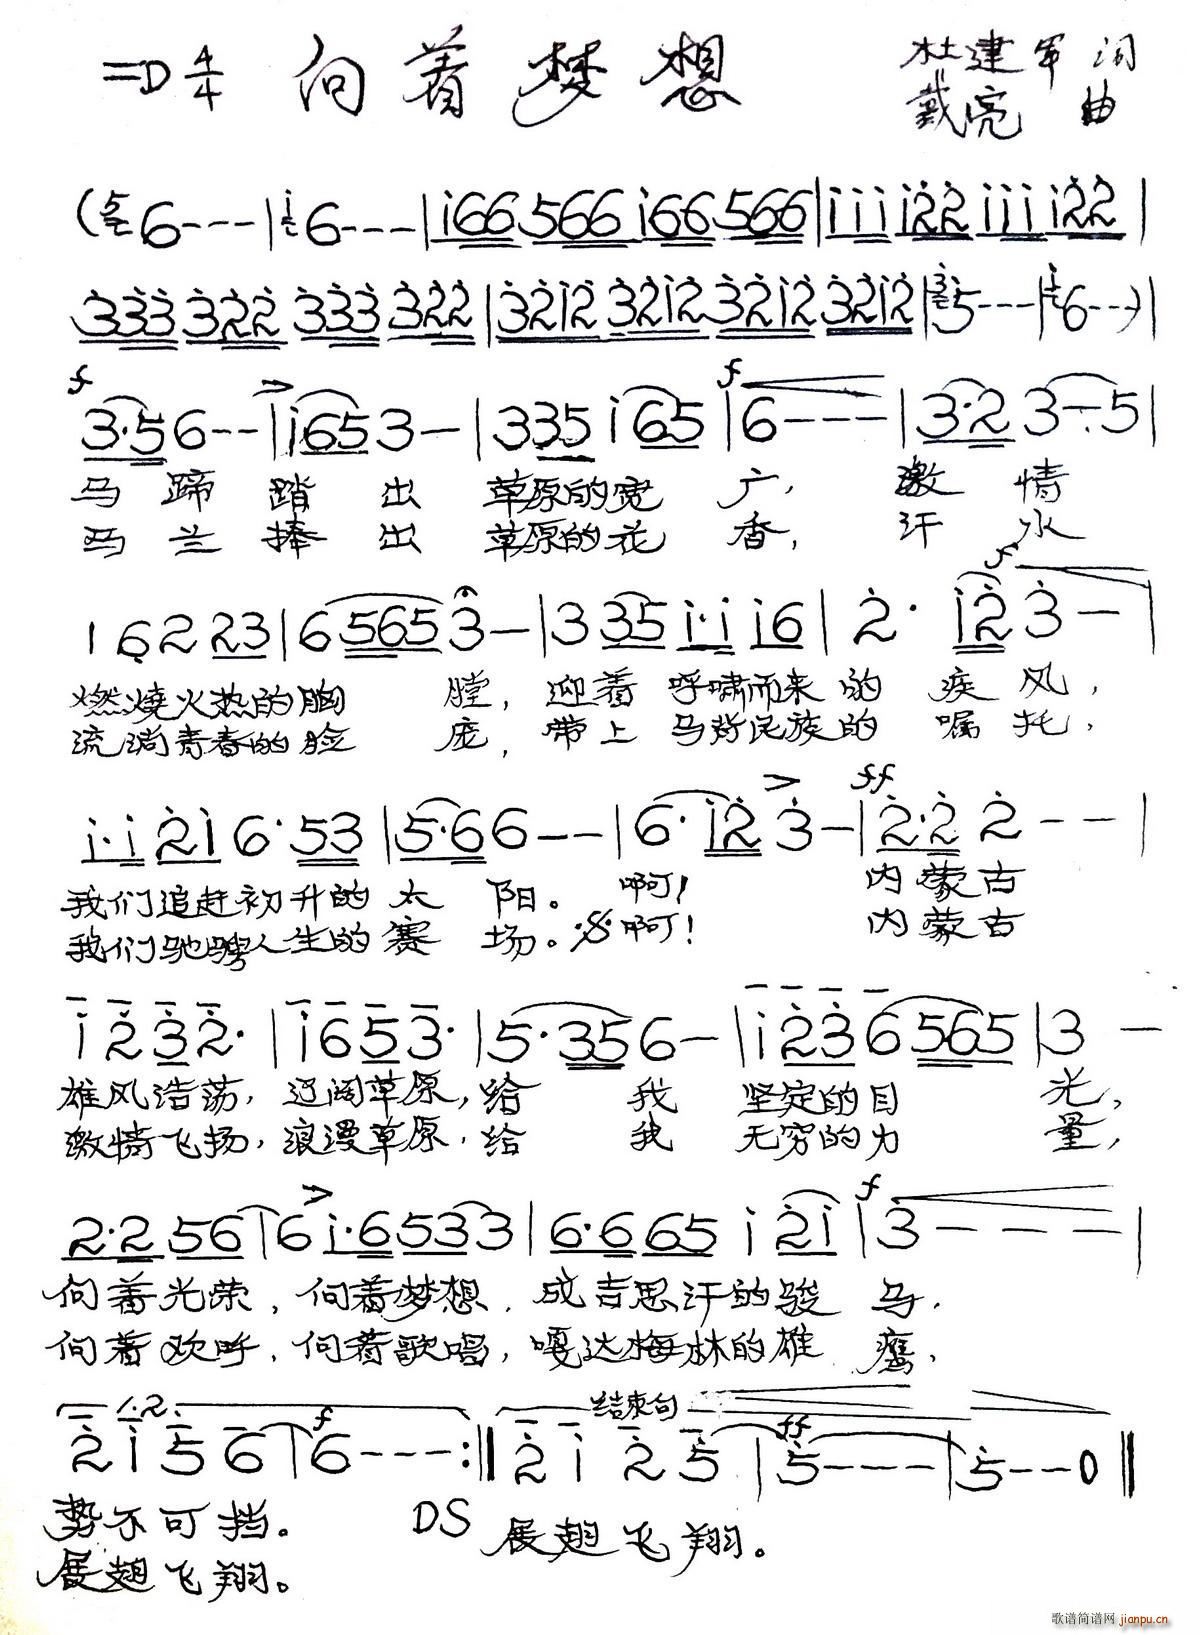 =D 4/4 向着梦想 杜建军 词
戴亮 曲
(6--- | 6--- | i66 566 i66 566 | iii i22 iii i22 |
333 322 333 322 | 3212 3212 3212 3212 | 5--- | 6--) |
f > f
3·5 6-- | i65 3- | 335 i65 | 6--- | 3·2 3-5 |
马蹄踏出草原的宽广，激情
马兰捧出草原的花香，汗水
f
1 6 2 23 | 6 565 3- | 3 35 i·i i6 | 2· i2 3- |
燃烧火热的胸膛，迎着呼啸而来的疾风，
流淌青春的脸庞，带上马背民族的嘱托，
> ff
i·i 2i 6·53 | 5·66-- | 6·i2 3- | 2·2 2-- |
我们追赶初升的太阳。啊！内蒙古
我们驰骋人生的赛场。啊！内蒙古
i 2 3 2· | i 6 5 3· | 5·35 6- | i 2 3 6 565 | 3 -
雄风浩荡，辽阔草原，给我坚定的目光，
激情飞扬，浪漫草原，给我无穷的力量，
> f
2·2 56 | 6 i·6 533 | 6·6 65 i 2i | 3--- |
向着光荣，向着梦想，成吉思汗的骏马，
向着欢呼，向着歌唱，嘎达梅林的雄鹰，
1.2 f 结束句 ff
2 i 5 6 | 6---:|| 2 i 2 5 | 5---- | 5---0 ||
势不可挡。 DS 展翅飞翔。
展翅飞翔。
歌谱简谱网 jianpu.cn